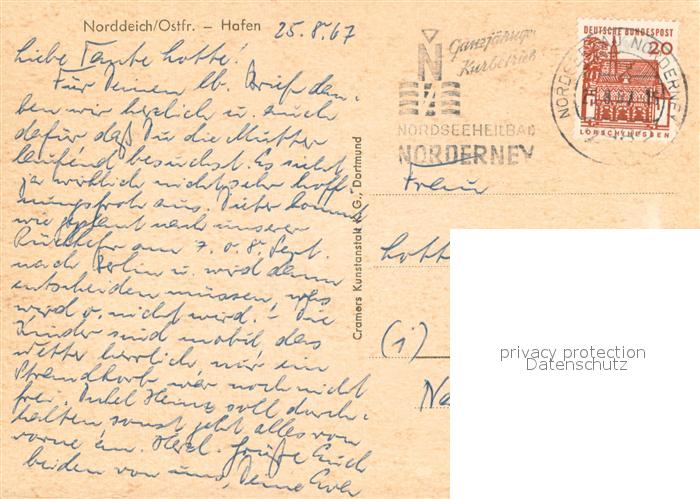 Norddeich/Ostfr. – Hafen
25.8.67
Liebe Tante Lotte!
Für Deinen lb. Brief dan-
ken wir herzlich u. auch
dafür daß Du die Mutter
laufend besuchst. Es sieht
ja wirklich nicht sehr hoff
nungsfroh aus. Dieter kommt
wie geplant nach unserer
Rückkehr am 7. o. 8. Sept.
nach Berlin u. wird dann
entscheiden müssen, was
wird o. nicht wird! – Die
Kinder sind mobil das
Wetter herrlich nur ein
Strandkorb war noch nicht
frei. Onkel Heinz soll durch-
halten sonst geht alles von
vorne an. Herzl. Grüße Euch
beiden von uns, Deine
Cramers Kunstanstalt K.G., Dortmund
Ganzjähriger
Kurbetrieb
N
NORDSEEHEILBAD
NORDERNEY
NORDSEEBAD NORDERNEY
DEUTSCHE BUNDESPOST
20
LORSCH/HESSEN
Frau
Lott
(1)
Na
privacy protection
Datenschutz